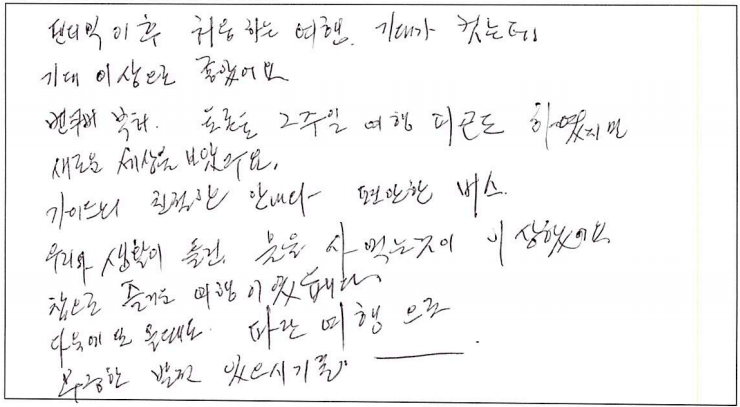 팬더믹 이후 처음 하는 여행. 기대가 컸는데,
기대 이상으로 좋았어요
벤쿠버 록키. 토론토 2주일 여행 피곤도 하였지만
새로운 세상을 보았어요.
가이드의 친절한 안내와 편안한 버스.
우리와 생활이 틀린, 물을 사 먹는 것이 이상했어요
참으로 즐거운 여행이였습니다.
다음에 또 올때도. 파란 여행 으로
무궁한 발전 있으시기를.